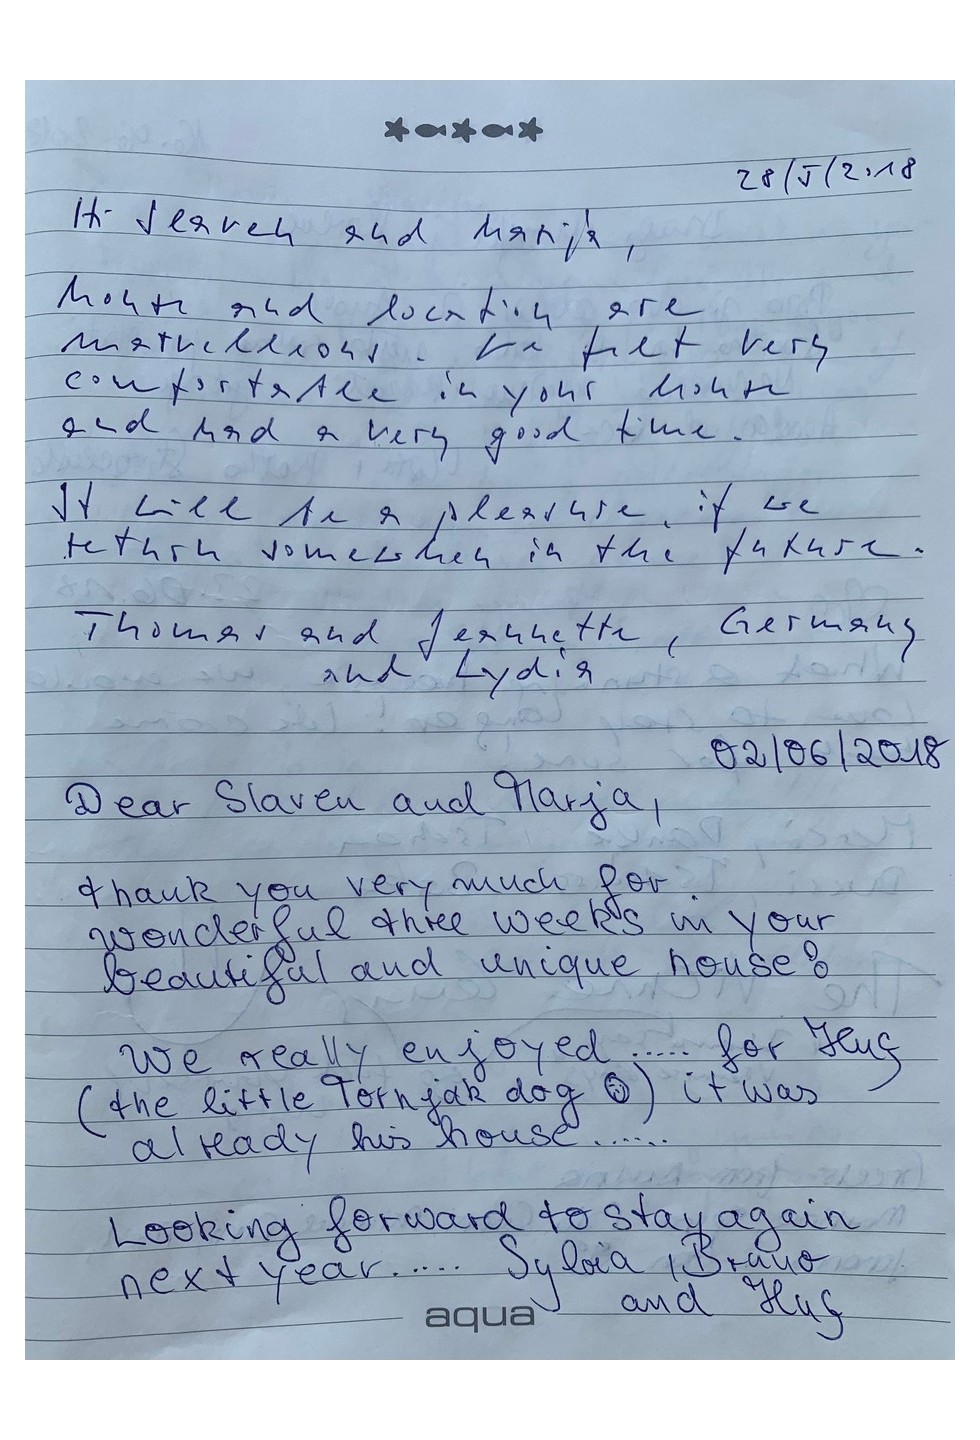 28/5/2018
Hi Slaven and Marija,
house and location are
marvellious. We felt very
comfortable in your house
and had a very good time.
It will be a pleasure, if we
return somewhen in the future.
Thomas and Jeannette, Germany
and Lydia
02/06/2018
Dear Slaven and Marja,
thank you very much for
wonderful three weeks in your
beautiful and unique house!
We really enjoyed ..... for
(the little Tornjak dog ☺) it was
already his house......
Looking forward to stay again
next year..... Sylvia, Bruno
and
aqua